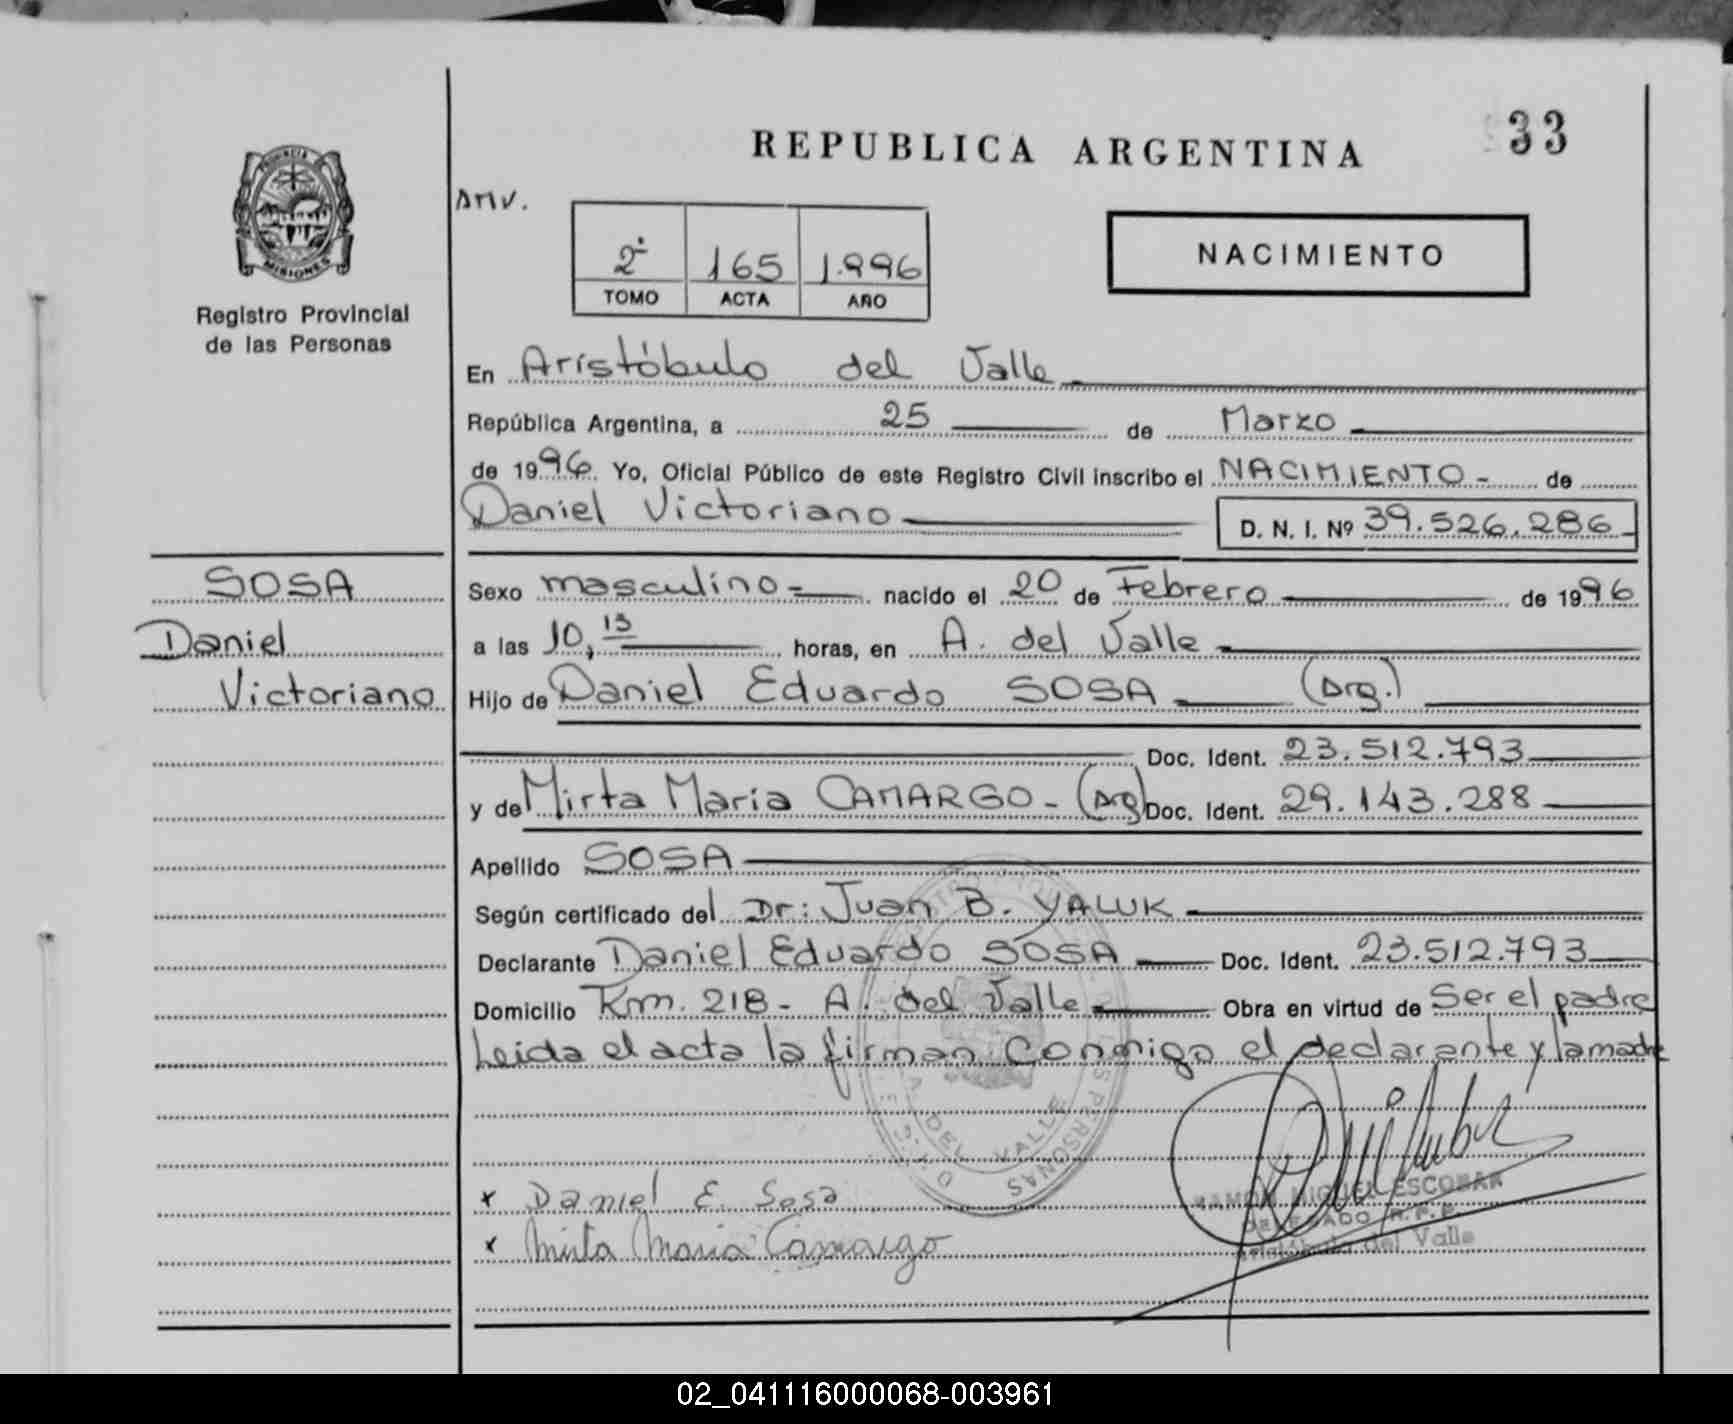 33
REPUBLICA ARGENTINA
PROVINCIA
MISIONES
Registro Provincial
de las Personas
2º 165 1.996
TOMO ACTA AÑO
NACIMIENTO
En Aristóbulo del Valle
República Argentina, a 25 de Marzo
de 1996. Yo, Oficial Público de este Registro Civil inscribo el NACIMIENTO - de
Daniel Victoriano D. N. I. Nº 39.526.286
SOSA
Daniel
Victoriano
Sexo masculino nacido el 20 de Febrero de 1996
a las 10,15 horas, en A. del Valle
Hijo de Daniel Eduardo SOSA (Arg.)
Doc. Ident. 23.512.793
y de Mirta Maria CAMARGO - (Arg) Doc. Ident. 29.143.288
Apellido SOSA
Según certificado del Dr: Juan B. YALUK
Declarante Daniel Eduardo SOSA Doc. Ident. 23.512.793
Domicilio Km. 218 - A. del Valle Obra en virtud de Ser el padre
Leida el acta la firman conmigo el declarante y la madre
A. DEL VALLE
x Daniel E. Sosa
x Mirta Maria Camargo
RAMON MIGUEL ESCOBAR
DELEGADO R.P.P.
Aristóbulo del Valle
02_041116000068-003961